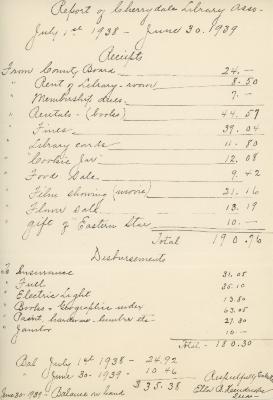 Report of Cherrydale Library Asso-
July 1st 1938 - June 30. 1939
Receipts
From County Board 24.—
" Rent of Library-room 8.50
" Membership dues 7.—
" Rentals - (books) 44.57
" Fines 39.04
" Library cards 11.80
" Cookie Jar 12.08
" Food Sale 9.42
" Film showing (movie) 21.16
" Flower Sale 13.19
" gift of Eastern Star 10.—
Total 190.76
Disbursements
To Insurance 31.05
" Fuel 35.10
" Electric Light 13.80
" Books + Geographic index 63.05
" Paint, hardware - lumber etc 27.30
" Janitor 10.—
Total - 180.30
Bal July 1st 1938 - 24.92
" June 30 - 1939 - 10.46
June 30 - 1939 - Balance on hand $35.38
Respectfully
Treas-